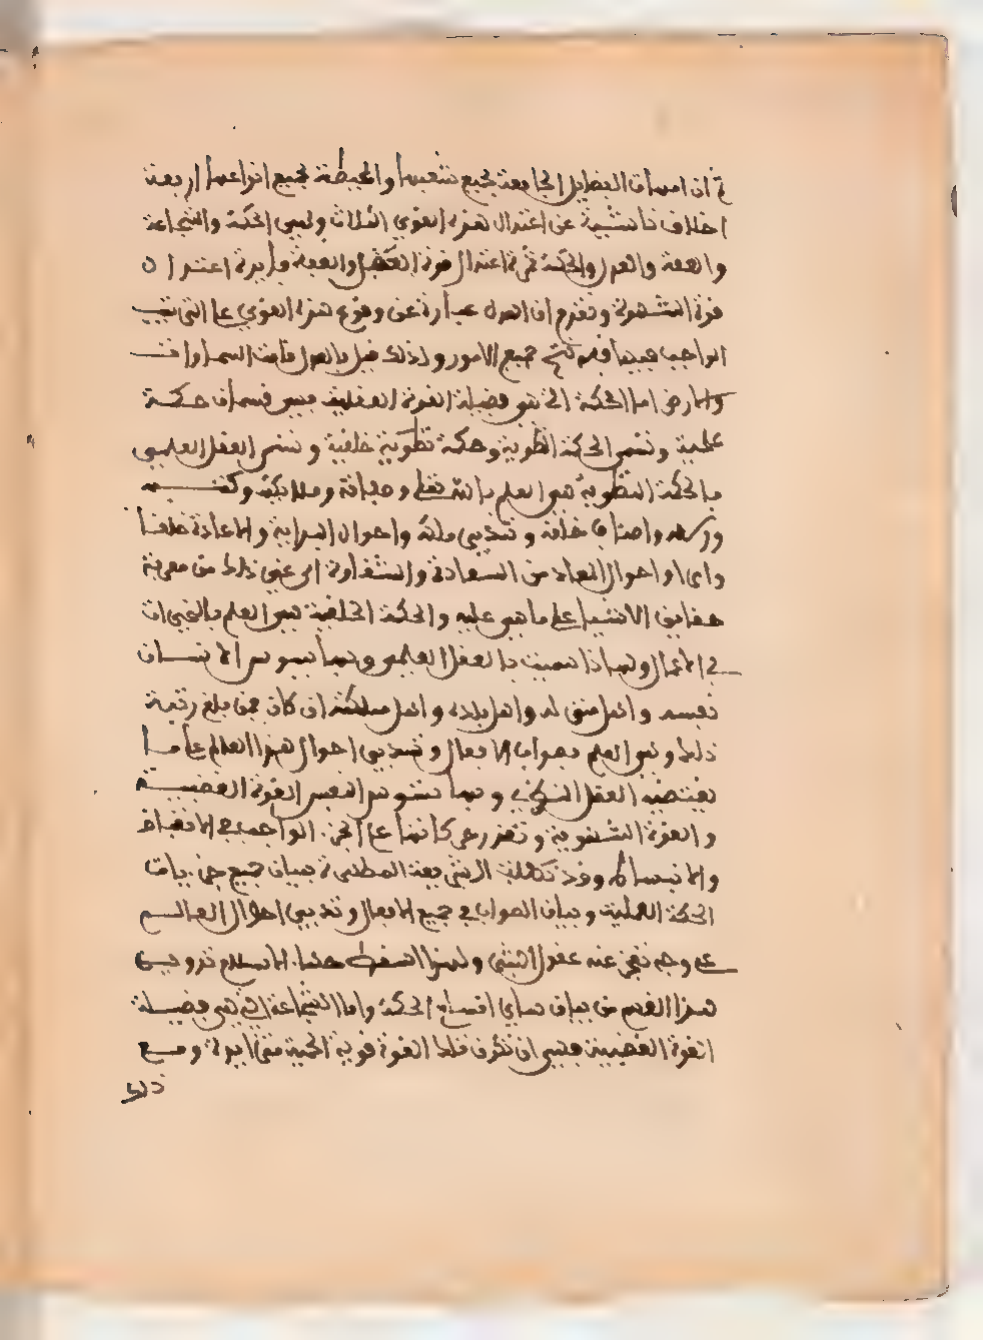 ثم ان امهات الفضايل الجامعة لجميع شعبها والمحيطة بجميع انواعها اربعة
اخلاق ناشية عن اعتدال هذه القوى الثلاث وهي الحكمة والشجاعة
والعفة والعدل والحكمة ثمرة اعتدال قوة العقل والعفة فايدة اعتدال
قوة الشهوة وتقدم ان العدل عبارة عن وقوع هذه القوى على الترتيب
الواجب فيها فبه تتم جميع الامور ولذلك قيل بالعدل قامت السماوات
والارض اما الحكمة التي هي فضيلة القوة العقلية فهي قسمان حكمة
علمية وتسمى الحكمة النظرية وحكمة خلقية وتسمى العقل العلمي
فالحكمة النظرية هي العلم بالله تعالى وصفاته وملايكته وكتبه
ورسله واصناف خلقه وتدبير ملكه واحوال البداية والاعادة خلقا
واحوال المعاد من السعادة والشقاوة الى غير ذلك من معرفة
حقايق الاشياء على ما هي عليه والحكمة الخلقية هي العلم بالخيرات
في الاعمال ولهذا سميت بالعقل العلمي وبها يسوس الانسان
نفسه واهل منزله واهل بلده واهل مملكته ان كان ممن بلغ رتبة
ذلك وهي العلم بصواب الافعال وتدبير احوال هذا العالم على ما
يقتضيه العقل الزكي وبها تسوس النفس القوة الغضبية
والقوة الشهوية وتقدر حركاتها على الحد الواجب في الانقباض
والانبساط وقد تكفلت الشريعة المطهرة ببيان جميع جزييات
الحكمة العملية وبيان الصواب في جميع الافعال وتدبير احوال العالم
على وجه تعجز عنه عقول البشر ولهذا اسقط حكماء الاسلام تدوين
هذا القسم من بيان ساير اقسام الحكمة واما الشجاعة التي هي فضيلة
القوة الغضبية فهي ان تكون تلك القوة قوية الحمية متزايدة ومع
ذلك